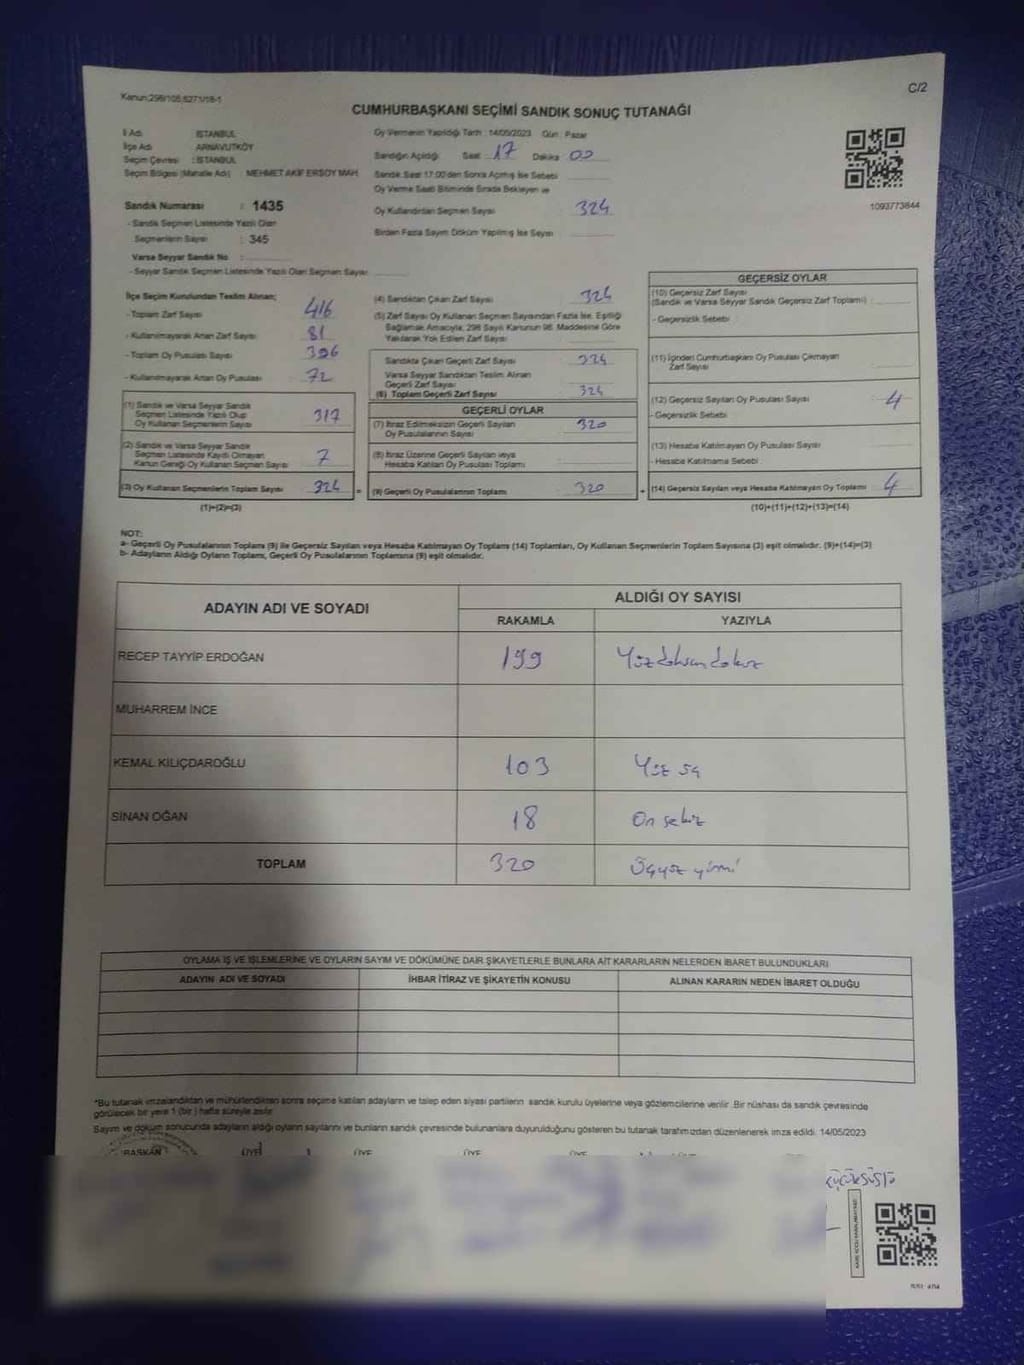 Kanun:298/105,6271/18-1
C/2
CUMHURBAŞKANI SEÇİMİ SANDIK SONUÇ TUTANAĞI
İl Adı : İSTANBUL
İlçe Adı : ARNAVUTKÖY
Seçim Çevresi : İSTANBUL
Seçim Bölgesi (Mahalle Adı) : MEHMET AKİF ERSOY MAH.
Sandık Numarası : 1435
- Sandık Seçmen Listesinde Yazılı Olan
Seçmenlerin Sayısı : 345
Varsa Seyyar Sandık No :
- Seyyar Sandık Seçmen Listesinde Yazılı Olan Seçmen Sayısı :
Oy Vermenin Yapıldığı Tarih : 14/05/2023 Gün : Pazar
Sandığın Açıldığı Saat : 17 Dakika 00
Sandık Saat 17:00'den Sonra Açılmış İse Sebebi
Oy Verme Saati Bitiminde Sırada Bekleyen ve
Oy Kullandırılan Seçmen Sayısı 324
Birden Fazla Sayım Döküm Yapılmış İse Sayısı
1093773844
İlçe Seçim Kurulundan Teslim Alınan;
- Toplam Zarf Sayısı 416
- Kullanılmayarak Artan Zarf Sayısı 81
- Toplam Oy Pusulası Sayısı 396
- Kullanılmayarak Artan Oy Pusulası 72
(1) Sandık ve Varsa Seyyar Sandık
Seçmen Listesinde Yazılı Olup
Oy Kullanan Seçmenlerin Sayısı 317
(2) Sandık ve Varsa Seyyar Sandık
Seçmen Listesinde Kaydı Olmayan
Kanun Gereği Oy Kullanan Seçmen Sayısı 7
(3) Oy Kullanan Seçmenlerin Toplam Sayısı 324
(1)+(2)=(3)
(4) Sandıktan Çıkan Zarf Sayısı 324
(5) Zarf Sayısı Oy Kullanan Seçmen Sayısından Fazla İse, Eşitliği
Sağlamak Amacıyla, 298 Sayılı Kanunun 98. Maddesine Göre
Yakılarak Yok Edilen Zarf Sayısı
Sandıkta Çıkan Geçerli Zarf Sayısı 324
Varsa Seyyar Sandıktan Teslim Alınan
Geçerli Zarf Sayısı
(6) Toplam Geçerli Zarf Sayısı 324
GEÇERLİ OYLAR
(7) İtiraz Edilmeksizin Geçerli Sayılan
Oy Pusulalarının Sayısı 320
(8) İtiraz Üzerine Geçerli Sayılan veya
Hesaba Katılan Oy Pusulası Toplamı
= (9) Geçerli Oy Pusulalarının Toplamı 320
GEÇERSİZ OYLAR
(10) Geçersiz Zarf Sayısı
(Sandık ve Varsa Seyyar Sandık Geçersiz Zarf Toplamı) :
- Geçersizlik Sebebi :
(11) İçinden Cumhurbaşkanı Oy Pusulası Çıkmayan
Zarf Sayısı
(12) Geçersiz Sayılan Oy Pusulası Sayısı 4
- Geçersizlik Sebebi
(13) Hesaba Katılmayan Oy Pusulası Sayısı
- Hesaba Katılmama Sebebi
+ (14) Geçersiz Sayılan veya Hesaba Katılmayan Oy Toplamı 4
(10)+(11)+(12)+(13)=(14)
NOT:
a- Geçerli Oy Pusulalarının Toplamı (9) ile Geçersiz Sayılan veya Hesaba Katılmayan Oy Toplam (14) Toplamları, Oy Kullanan Seçmenlerin Toplam Sayısına (3) eşit olmalıdır. (9)+(14)=(3)
b- Adayların Aldığı Oyların Toplamı, Geçerli Oy Pusulalarının Toplamına (9) eşit olmalıdır.
ADAYIN ADI VE SOYADI
ALDIĞI OY SAYISI
RAKAMLA YAZIYLA
RECEP TAYYİP ERDOĞAN 199 Yüzdoksandokuz
MUHARREM İNCE
KEMAL KILIÇDAROĞLU 103 Yüz üç
SİNAN OĞAN 18 On sekiz
TOPLAM 320 Üçyüz yirmi
OYLAMA İŞ VE İŞLEMLERİNE VE OYLARIN SAYIM VE DÖKÜMÜNE DAİR ŞİKAYETLERLE BUNLARA AİT KARARLARIN NELERDEN İBARET BULUNDUKLARI
ADAYIN ADI VE SOYADI İHBAR İTİRAZ VE ŞİKAYETİN KONUSU ALINAN KARARIN NEDEN İBARET OLDUĞU
*Bu tutanak imzalandıktan ve mühürlendikten sonra seçime katılan adayların ve talep eden siyasi partilerin sandık kurulu üyelerine veya gözlemcilerine verilir. Bir nüshası da sandık çevresinde
görülecek bir yere 1 (bir) hafta süreyle asılır.
Sayım ve döküm sonucunda adayların aldığı oyların sayılarını ve bunların sandık çevresinde bulunanlara duyurulduğunu gösteren bu tutanak tarafımızdan düzenlenerek imza edildi. 14/05/2023
BAŞKAN ÜYE ÜYE ÜYE ÜYE ÜYE